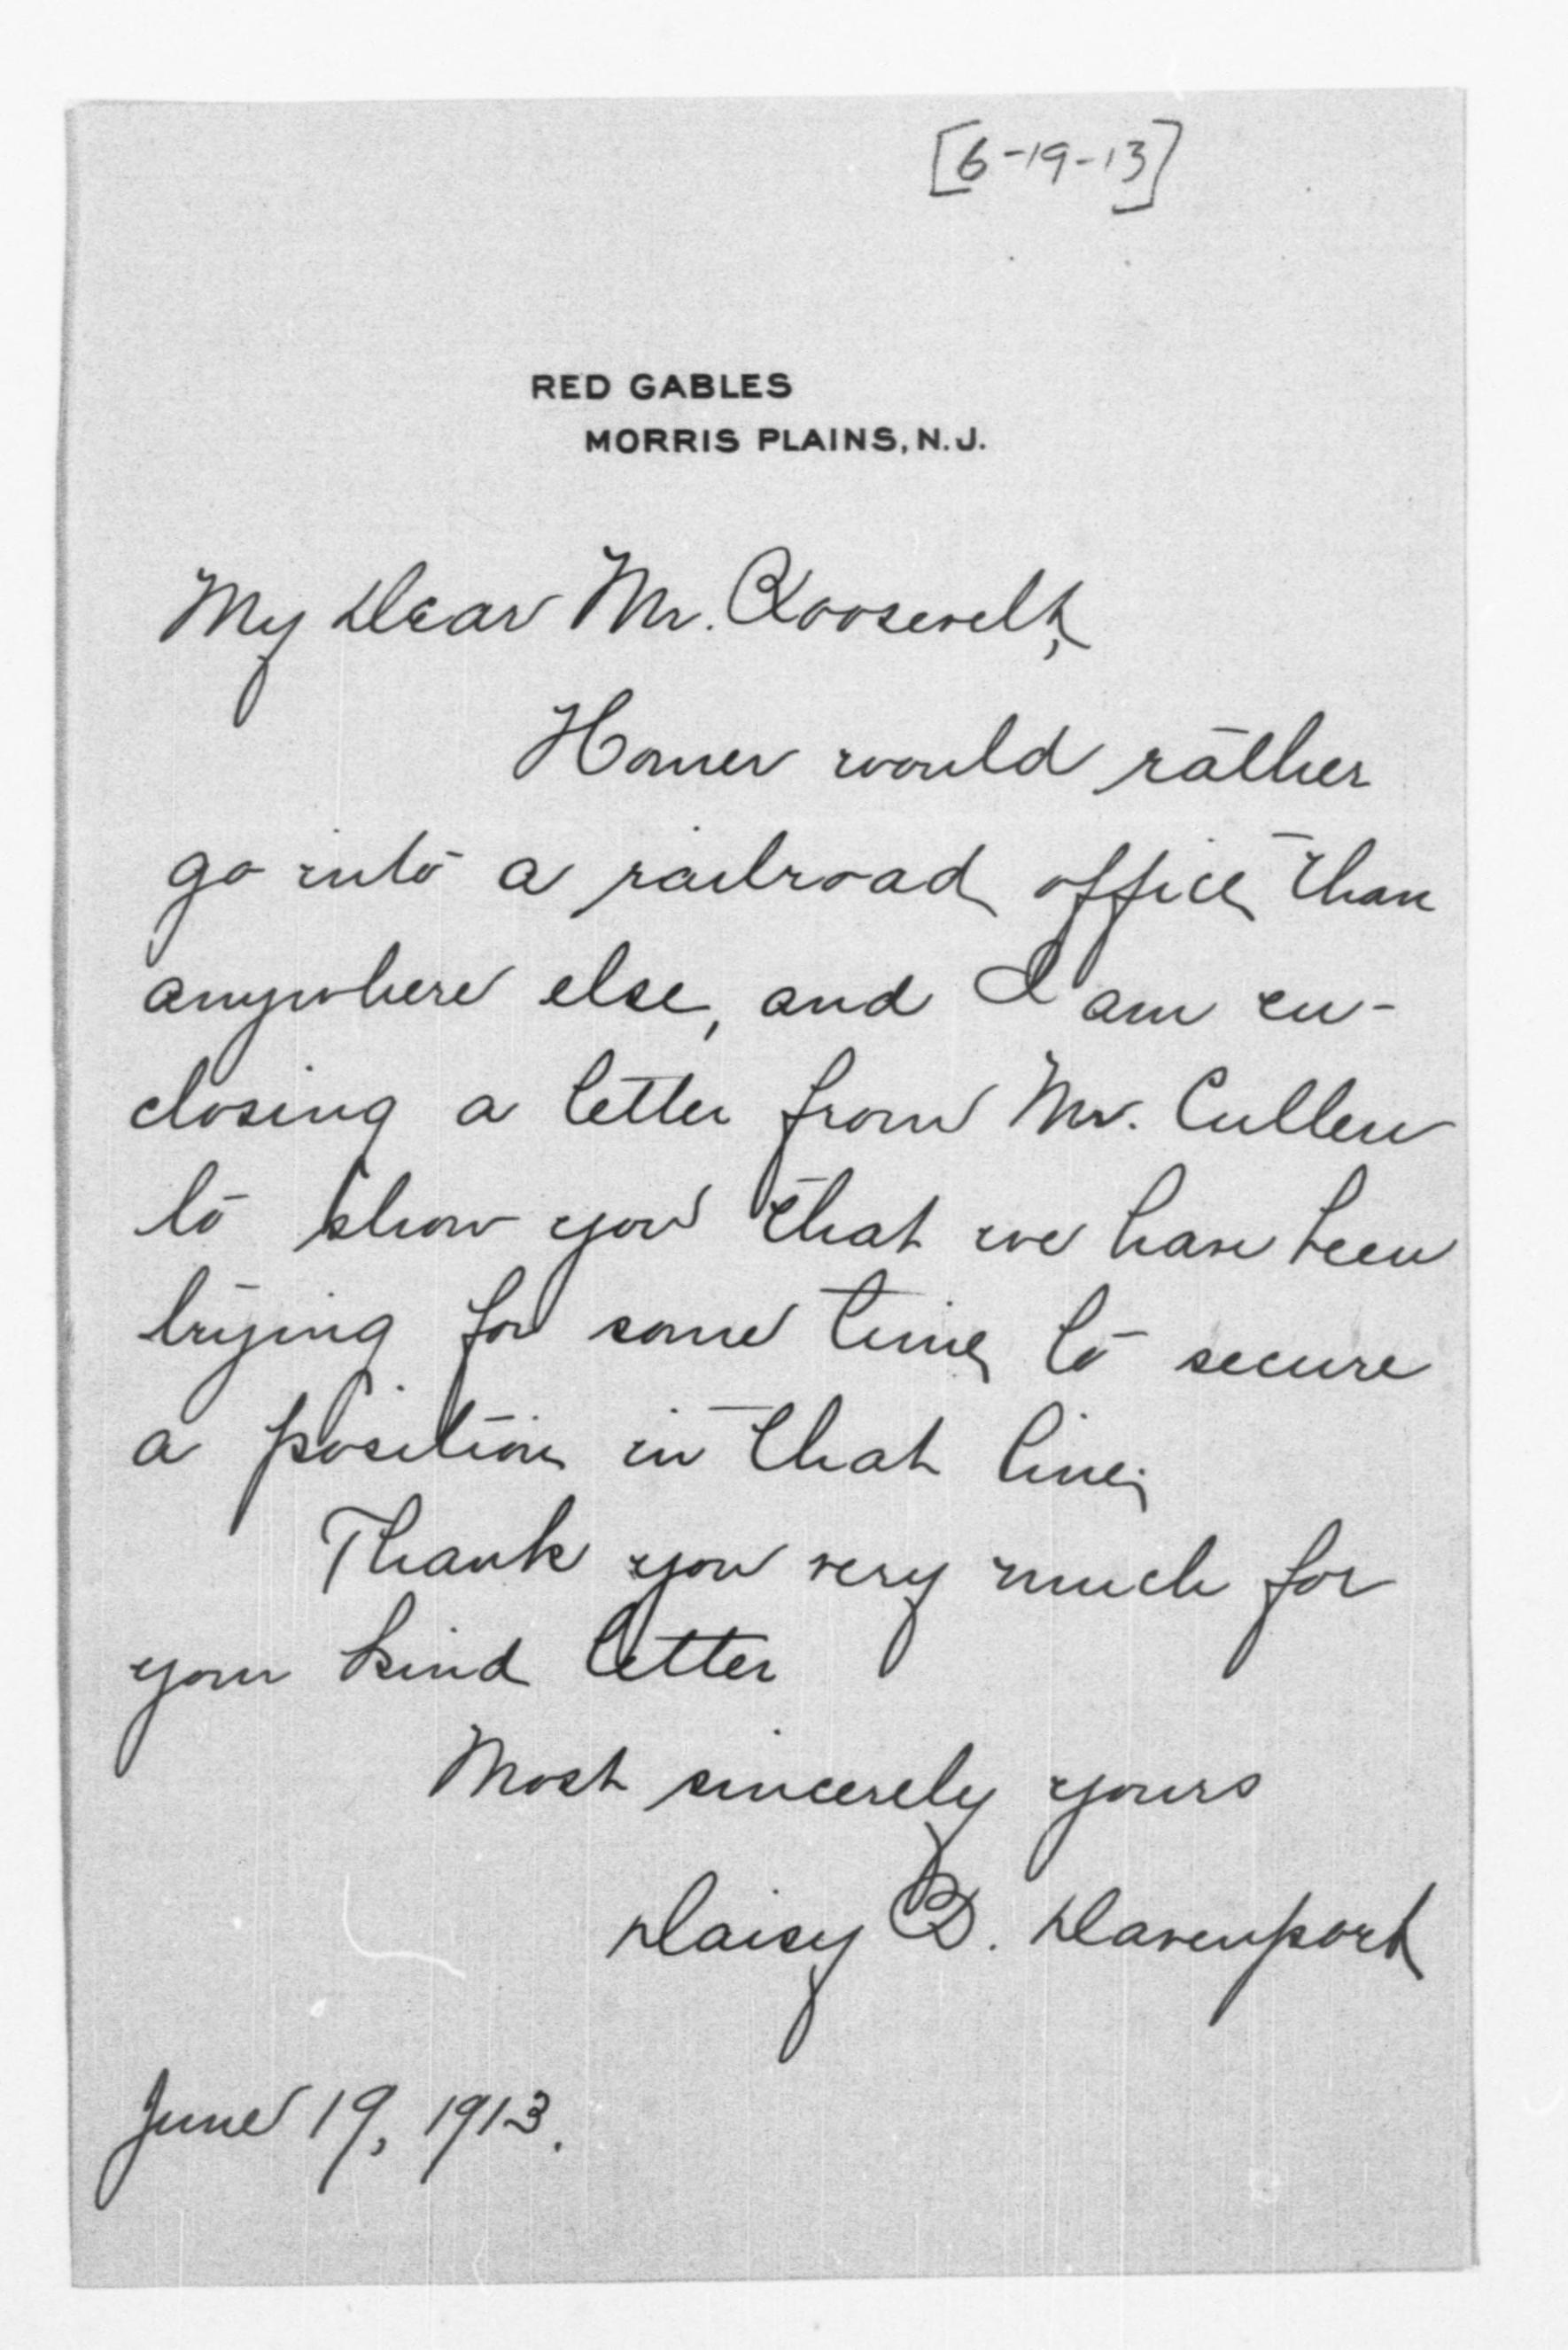 [6-19-13]
RED GABLES
MORRIS PLAINS, N.J.
My Dear Mr. Roosevelt,
Homer would rather
go into a railroad office than
anywhere else, and I am en-
closing a letter from Mr. Cullen
to show you that we have been
trying for some time to secure
a position in that line.
Thank you very much for
your kind letter
Most sincerely yours
Daisy B. Davenport
June 19, 1913.